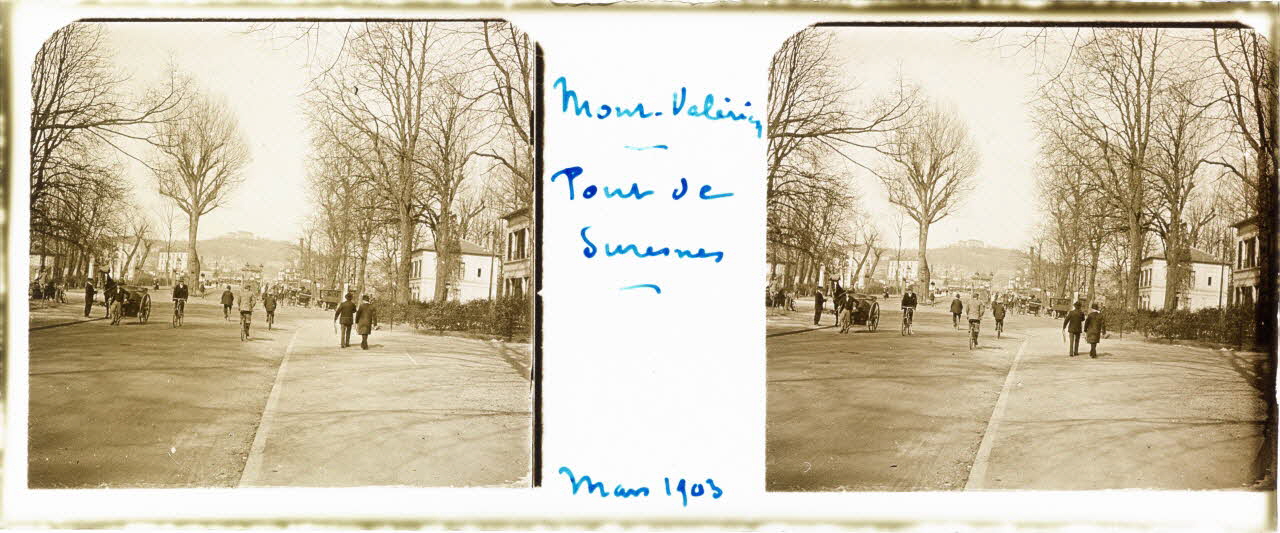 Mont-Valérien
Pont de
Suresnes
Mars 1903